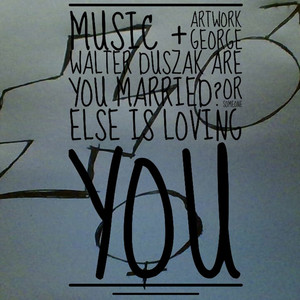 MUSIC + ARTWORK
GEORGE
WALTER DUSZAK ARE
YOU MARRIED? OR
SOMEONE
ELSE IS LOVING
YOU